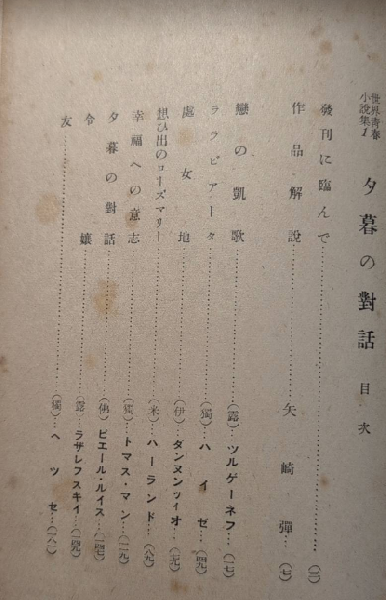 世界青春
小說集1
夕暮の對話 目次
發刊に臨んで……(二)
作品解說……矢崎彈…(七)
戀の凱歌……(露)ツルゲーネフ…(一七)
ララビアータ……(獨)ハイゼ…(四九)
處女地……(伊)ダンヌンツィオ…
想ひ出のローズマリー……(米)ハーランド…(八九)
幸福への意志……(獨)トマス・マン…(一一九)
夕暮の對話……(佛)ピエール・ルイス…(一四七)
令孃……(露)ラザレフスキイ…
友……(獨)ヘッセ…(一八一)